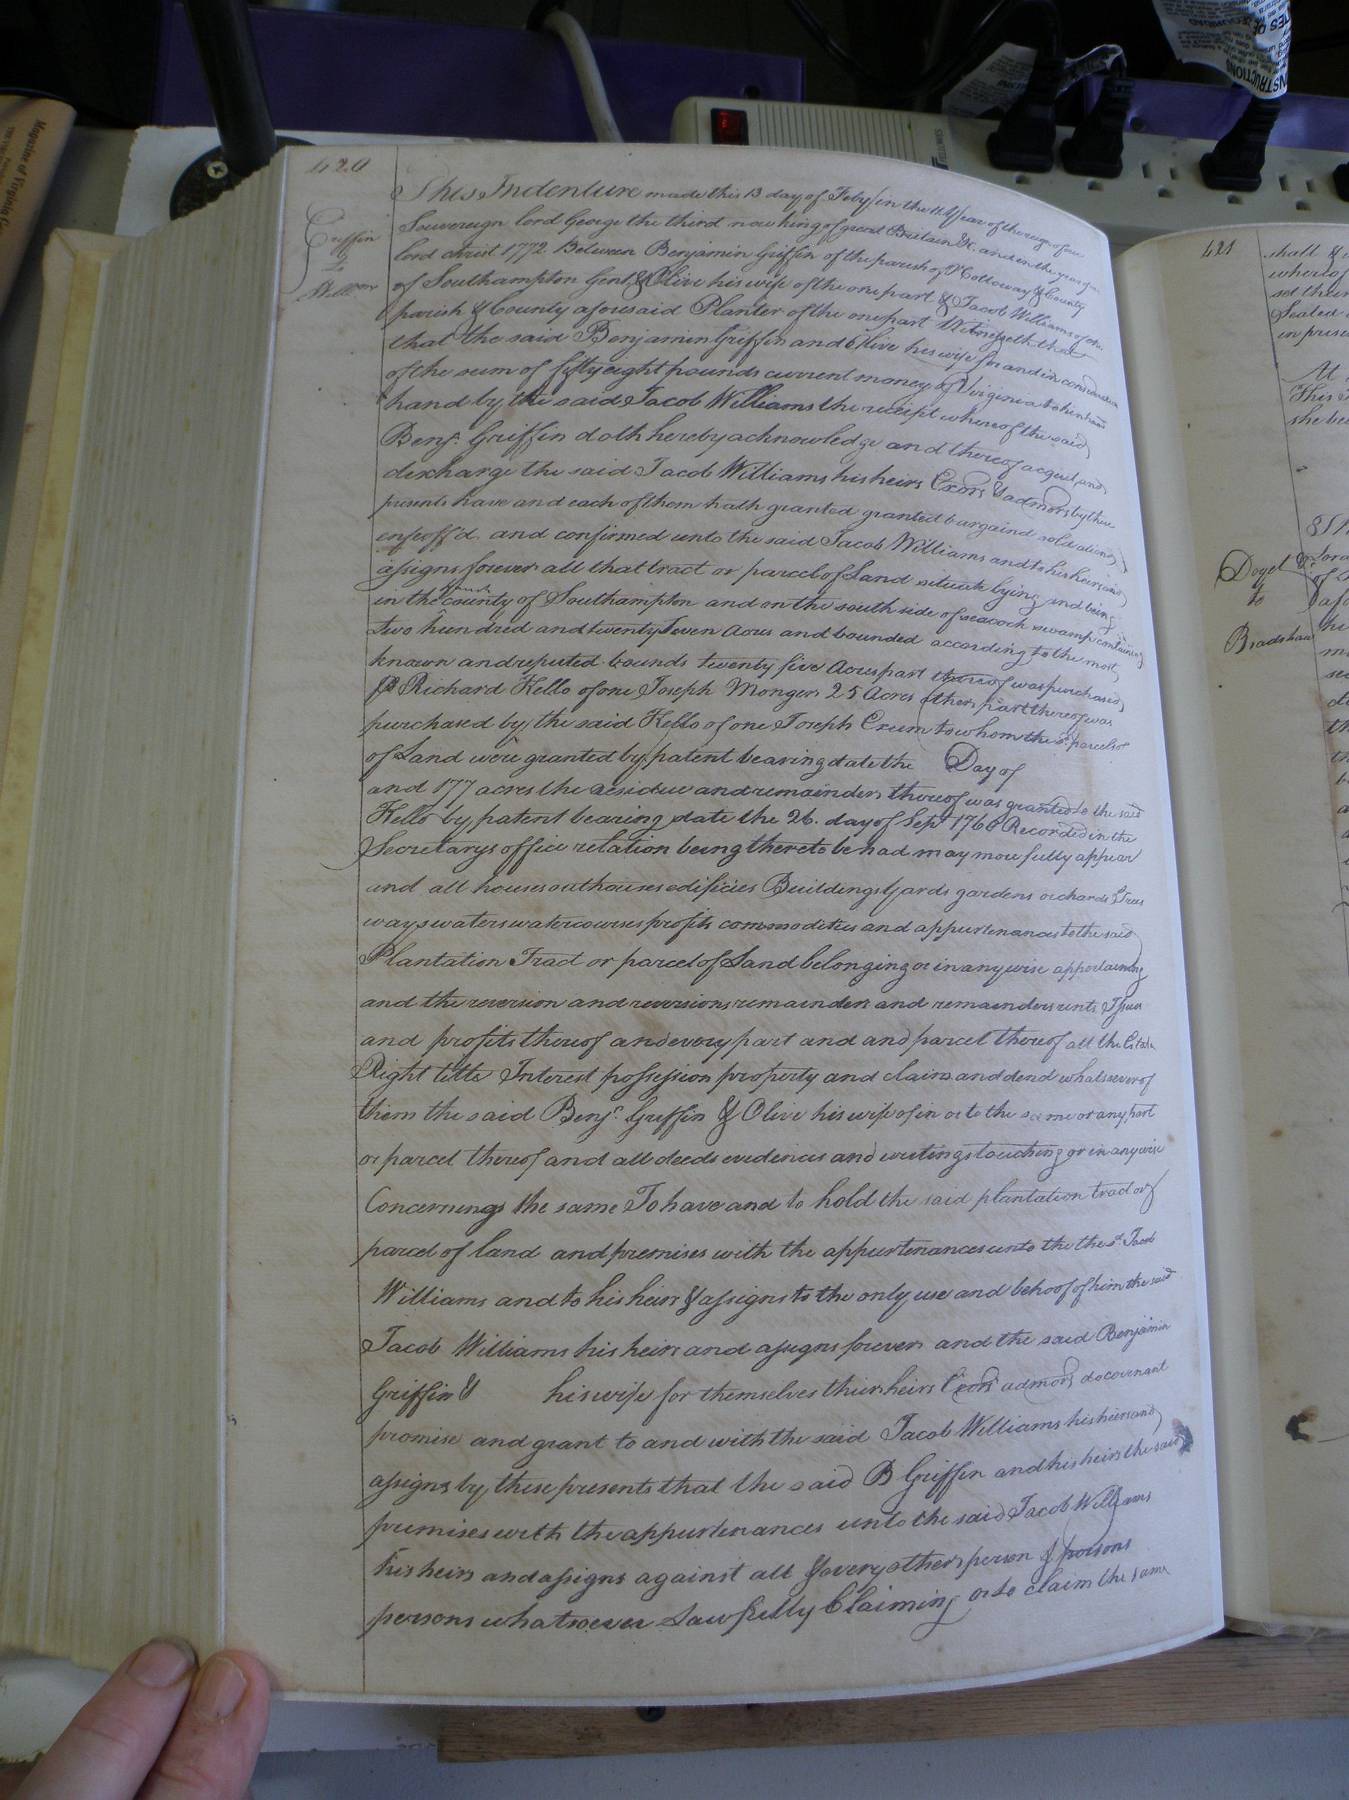 420
Griffin
to
This Indenture made this 13 day of Feby in the 11 Year of the reign of our
Sovereign lord George the third now king of great Britain &c. and in the year of our
lord christ 1772 Between Benjamin Griffin of the parish of & County
of Southampton Gent. & Olive his wife of the one part & Jacob Williams of the
parish & County aforesaid Planter of the one part Witnesseth that
that the said Benjamin Griffin and Olive his wife for and in consideration
of the sum of fifty eight pounds current money of Virginia to him in
hand by the said Jacob Williams the receipt whereof the said
Benj.n Griffin doth hereby acknowledge and thereof acquit and
discharge the said Jacob Williams his heirs Exors & admors by these
presents have and each of them hath granted granted bargaind sold aliend
enfeoff'd and confirmed unto the said Jacob Williams and to his heirs and
assigns forever all that tract or parcel of Land situate lying and being
in the county of Southampton and on the south side of seacock swamp containing
two hundred and twenty Seven Acres and bounded according to the most
known and reputed bounds twenty five Acres part thereof was purchased
Richard Kello of one Joseph Monger 25 Acres other part thereof was
purchased by the said Kello of one Joseph Exum to whom the sd parcels of
of Land were granted by patent bearing date the Day of
and 177 acres the residue and remainder thereof was granted to the said
Kello by patent bearing date the 26. day of Sept 1760 Recorded in the
Secretarys office relation being thereto be had may more fully appear
and all houses outhouses edificies Buildings Yards gardens orchards & Trees
ways waters watercourses profits commodities and appurtenances to the said
Plantation Tract or parcel of Land belonging or in any wise appertaining
and the reversion and reversions remainder and remainders rents Issues
and profits thereof and every part and and parcel thereof all the Estate
Right title Interest possession property and claim and dend whatsoever of
them the said Benj.n Griffin & Olive his wife of in or to the same or any part
or parcel thereof and all deeds evidences and writings touching or in any wise
Concerning the same To have and to hold the said plantation tract or
parcel of land and premises with the appurtenances unto the the sd Jacob
Williams and to his heirs & assigns to the only use and behoof of him the said
Jacob Williams his heirs and assigns forever and the said Benjamin
Griffin & his wife for themselves thier heirs Exors admors do covenant
promise and grant to and with the said Jacob Williams his heirs and
assigns by these presents that the said B Griffin and his heirs the said
premises with the appurtenances unto the said Jacob Williams
his heirs and assigns against all & every other person & persons
persons whatsoever Lawfully Claiming or to claim the same
421
shall &
whereof
set their
Sealed
in presen
At
This
she be
Doyel
to
Bradshaw